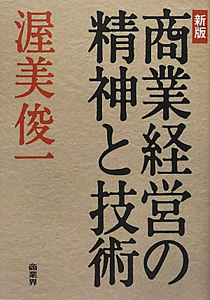 新版
商業経営の
精神と技術
渥美俊一
商業界